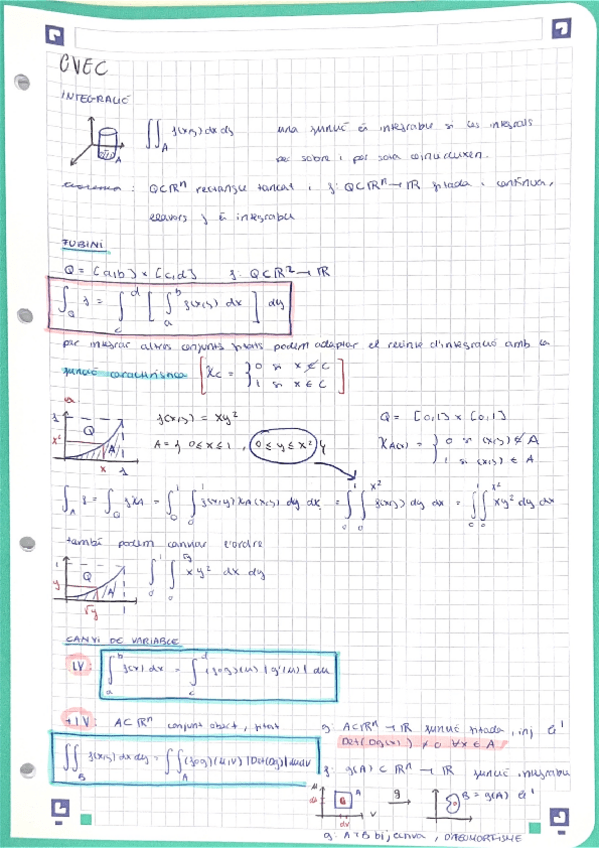 CVEC
INTEGRACIÓ
∬_A f(x,y) dx dy   una funció és integrable si les integrals
per sobre i per sota coincideixen.
teorema : Q⊂ℝⁿ rectangle tancat i f: Q⊂ℝⁿ → ℝ fitada i contínua,
llavors f és integrable
FUBINI
Q = [a,b] × [c,d]   f: Q⊂ℝ² → ℝ
∫_Q f = ∫_c^d [ ∫_a^b f(x,y) dx ] dy
per integrar altres conjunts fitats podem adaptar el recinte d'integració amb la
funció característica [ χ_C = { 0 si x ∉ C
1 si x ∈ C ]
1 Q x² A x 1
f(x,y) = xy²   Q = [0,1] × [0,1]
A = { 0 ≤ x ≤ 1 , 0 ≤ y ≤ x² }   χ_A(x) = { 0 si (x,y) ∉ A
1 si (x,y) ∈ A
∫_A f = ∫_Q f χ_A = ∫_0^1 ∫_0^1 f(x,y) χ_A(x,y) dy dx = ∫_0^1 ∫_0^{x²} f(x,y) dy dx = ∫_0^1 ∫_0^{x²} xy² dy dx
també podem canviar l'ordre
1 Q y A √y 1   ∫_0^1 ∫_0^{√y} xy² dx dy
CANVI DE VARIABLE
1V: ∫_a^b f(x) dx = ∫_c^d (f∘g)(u) |g'(u)| du
+1V: A⊂ℝⁿ conjunt obert, fitat   g: A⊂ℝⁿ → ℝ funció fitada, inj C¹
Det(Dg(x)) ≠ 0 ∀x ∈ A
∬_B f(x,y) dx dy = ∬_A (f∘g)(u,v) |Det(Dg)| du dv   f: g(A) ⊂ ℝⁿ → ℝ funció integrable
u du A dv v   g →   B = g(A) C¹
g: A→B bijectiva, DIFEOMORFISME